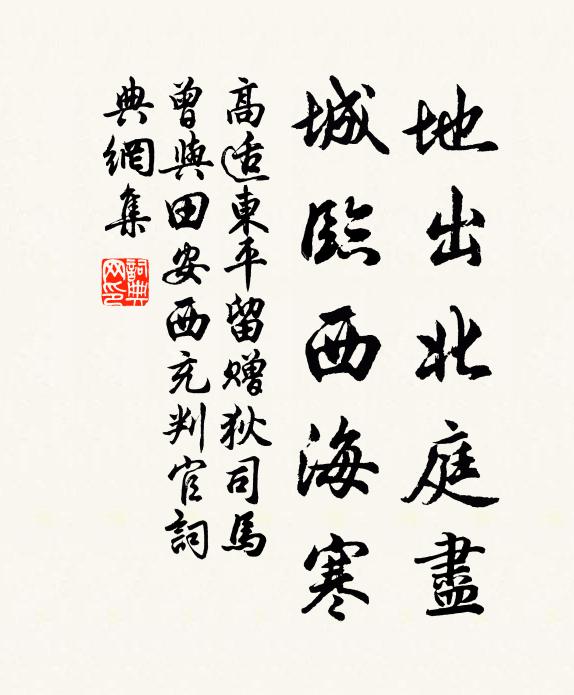 地出北庭盡
城臨西海寒
高适東平留贈狄司馬
曾與田安西充判官詞
典網集
詞典
网印